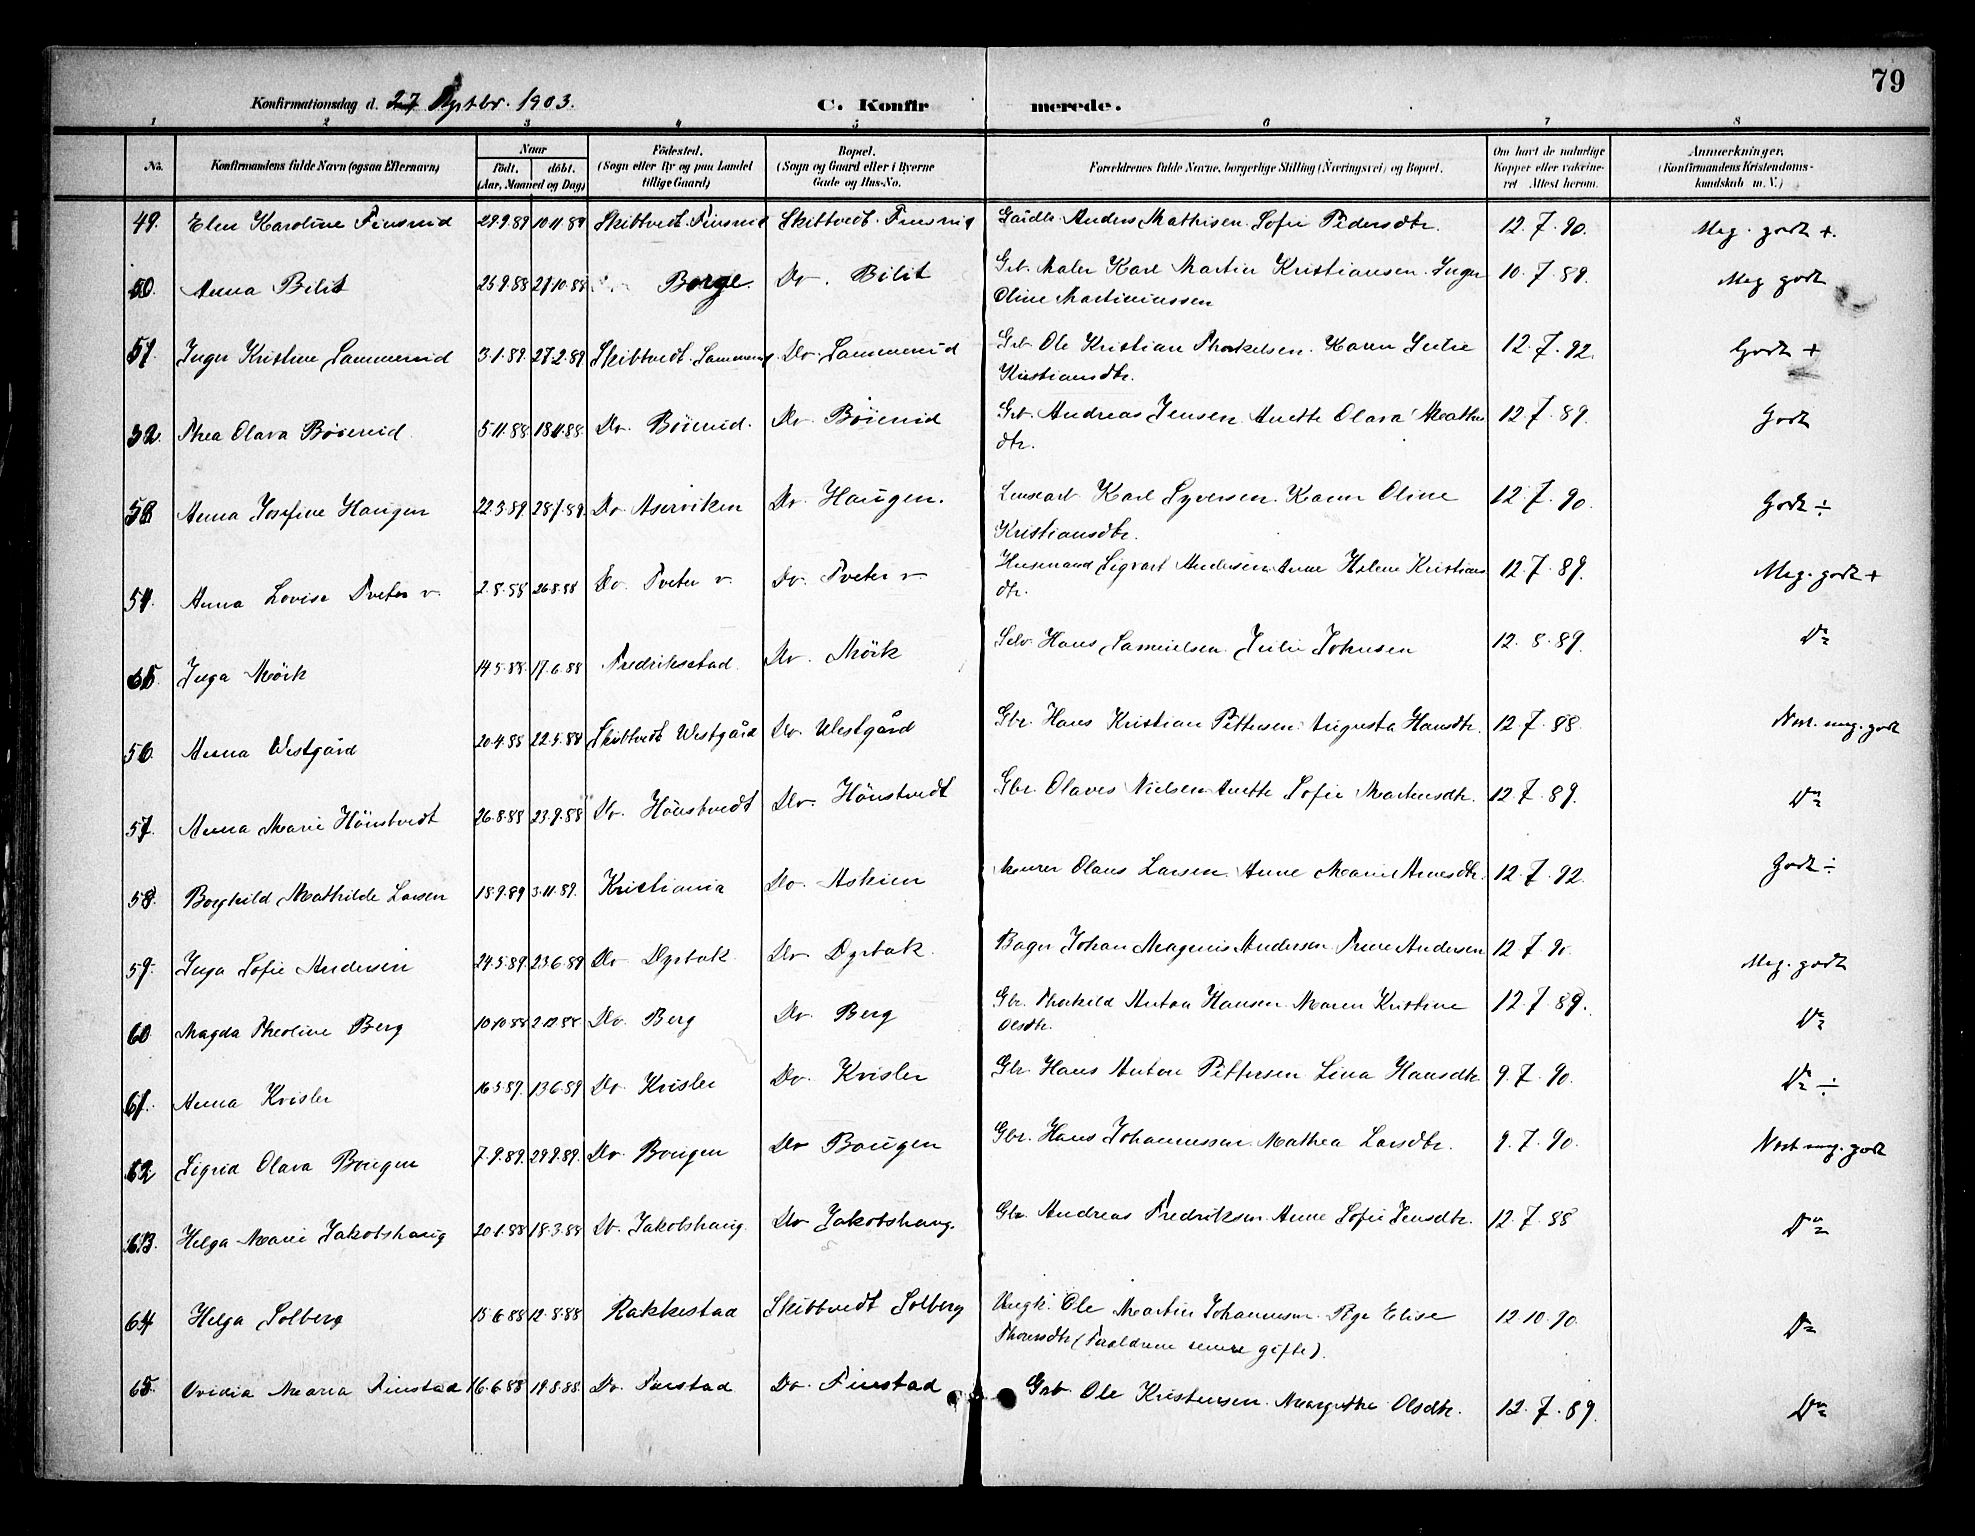 79
Konfirmationsdag d. 27 Septbr. 1903.
C. Konfirmerede.
1 2 3 4 5 6 7 8
No. | Konfirmandens fulde Navn (ogsaa Efternavn) | Naar født, døbt. (Aar, Maaned og Dag) | Födested. (Sogn eller By og paa Landet tillige Gaard) | Bopæl. (Sogn og Gaard eller i Byerne Gade og Hus-No. | Forældrenes fulde Navne, borgerlige Stilling (Næringsvei) og Bopæl. | Om havt de naturlige Kopper eller vakcineret Attest herom. | Anmærkninger. (Konfirmandens Kristendomskundskab m. V.)
49. Elen Karoline Finsrud 29.9.89 10.11.89 Skibtvedt Finsrud Skibtvedt. Finsrud Anders Mathisen. Sofie Pedersdtr. 12.7.90. Meg. godt +.
50. Anna Bilit 25.9.88 21.10.88 Borge. Do. Bilit Grb. Maler Karl Martin Kristiansen. Inger 10.7.89. Meg godt
Oline Martiniussen
51. Inger Kristine Lammerud 3.1.89. 27.2.89 Skibtvedt. Lammerud. Do. Lammerud Grb. Ole Kristian Thorkelsen. Karen Julie 12.7.92. Godt +
Kristiansdtr.
52. Thea Olava Böierud. 5.11.88 18.11.88 Do. Böierud. Do Böierud Grb. Andreas Jensen. Anette Olava Mathis 12.7.89. Godt
dtr.
53. Anna Josefine Haugen 22.3.89. 28.7.89. Do Aserviken Do. Haugen. Karl Syversen. Karen Oline 12.7.90. Godt ÷
Kristiansdtr.
54. Anna Lovise Tveter v. 2.8.88 26.8.88 Do. Tveter v. Do. Tveter v Husmand Sigvart Andersen. Anne Helene Kristians 12.7.89. Meg. godt +
dtr.
55. Inga Mörk 14.5.88. 17.6.88 Fredriksstad. Do. Mörk Selv. Hans Samuelsen. Julie Johnsen 12.8.89. Do
56. Anna Westgård 20.4.88 22.5.88 Skibtvedt Westgård Do. Westgård Gbr. Hans Kristian Pettersen. Augusta Hansdtr. 12.7.88. Næst. meg. godt
57. Anna Marie Hönstvedt 26.8.88 23.9.88 Do. Hönstvedt Do. Hönstvedt Gbr. Olaves Nielsen. Anette Sofie Martinsdtr. 12.7.89. Do
58. Borghild Mathilde Larsen 18.9.89 3.11.89. Kristiania Do. Askim Murer Olaus Larsen. Anne Marie Arnesdtr. 12.7.92. Godt ÷
59. Inga Sofie Andersen 24.5.89 23.6.89 Do Dyrbak. Do Dyrbak. Bager Johan Magnus Andersen. Trine Andersen 12.7.90. Meg. godt
60 Magda Theoline Berg 10.10.88 2.12.88 Do. Berg Do. Berg Gbr. Thorkild Anton Hansen. Maren Kristine 12.7.89. Do
Olsdtr.
61. Anna Krisler 16.5.89. 13.6.89 Do. Krisler Do. Krisler Gbr. Hans Anton Pettersen Lina Hansdtr. 9.7.90. Do ÷
62 Sigrid Olava Bougen 7.9.89. 29.9.89. Do. Bougen Do Bougen Gbr. Hans Johannessen. Mathea Larsdtr. 9.7.90. Næst meg. godt
63. Helga Marie Jakobshaug 20.1.88 18.3.88 Do. Jakobshaug. Do Jakobshaug. Gbr. Andreas Fredriksen. Anne Sofie Jensdtr. 12.7.88 Do
64 Helga Solberg 15.6.88 12.8.88 Rakkestad Skibtvedt Solberg Ungk. Ole Martin Johannessen. Pge Elise 12.10.90. Do
Thoresdtr. (Forældrene senere gifte).
65. Ovidia Maria Finstad 16.6.88 19.8.88. Do. Finstad Do. Finstad Grb. Ole Kristensen. Margrethe Olsdtr. 12.7.89. Do